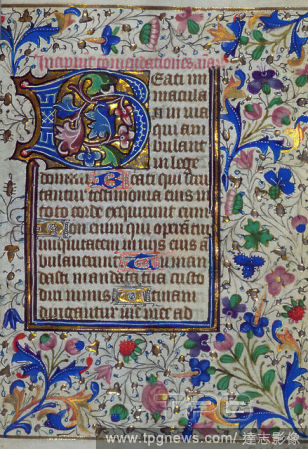 Incipiunt commendationes
Beati im
macula
ti in uia
qui am
bulant
in lege
domini Beati qui scru
tantur testimonia eius in
toto corde exquirunt eum
Non enim qui operati sunt
iniquitatem in uiis eius a
bulauerunt Tu man
dasti mandata tua custo
diri nimis Utinam
dirigantur uie mee ad
TPG
www.tpgnews.com/達志影像